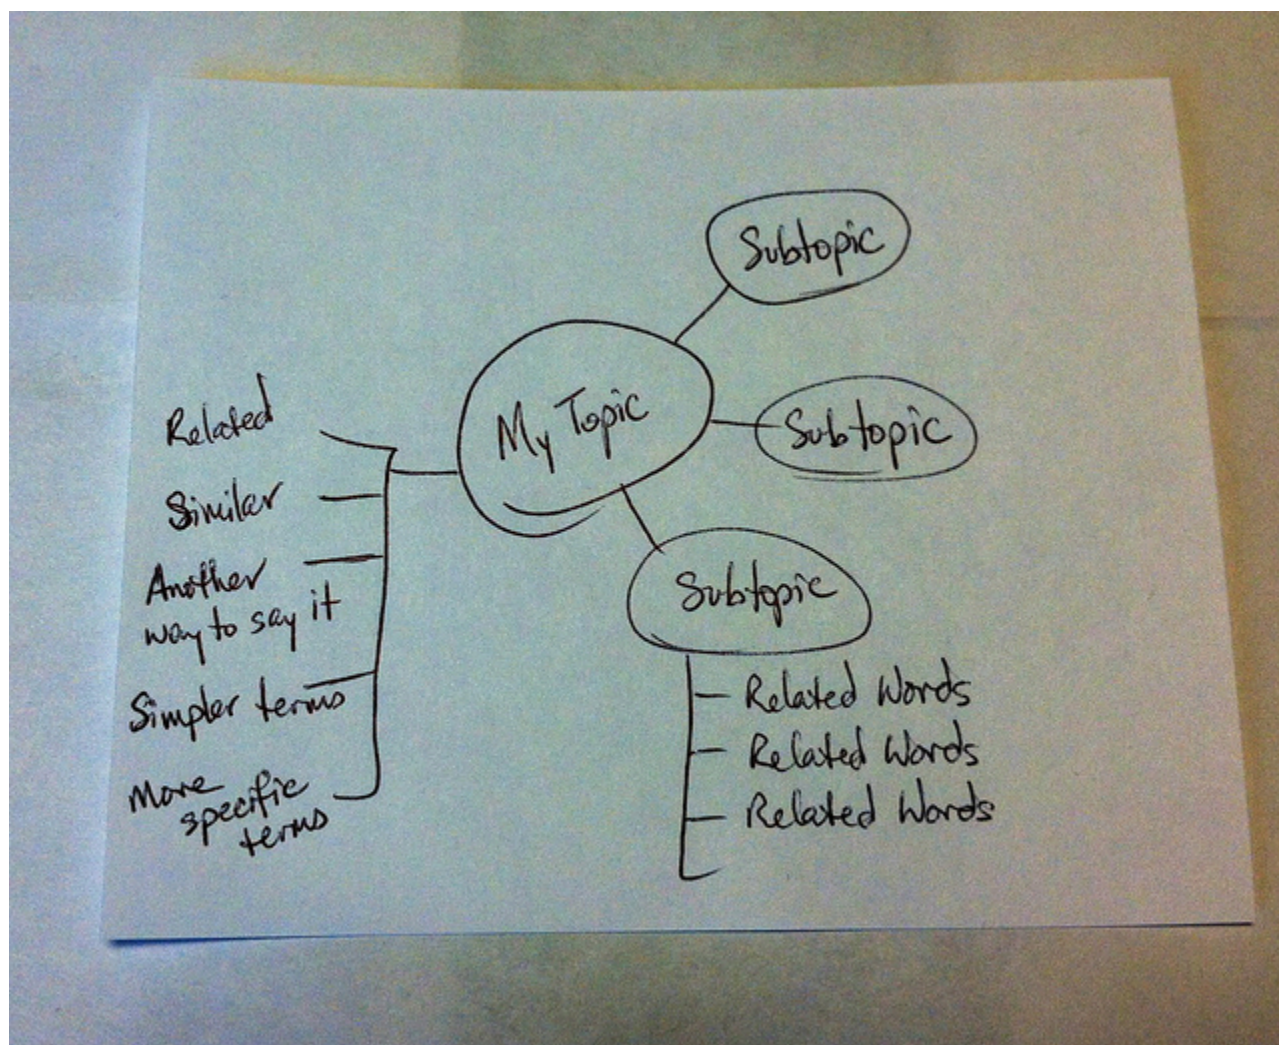 Subtopic
My Topic
Subtopic
Subtopic
Related Words
Related Words
Related Words
Related
Similar
Another
way to say it
Simpler terms
More
specific
terms